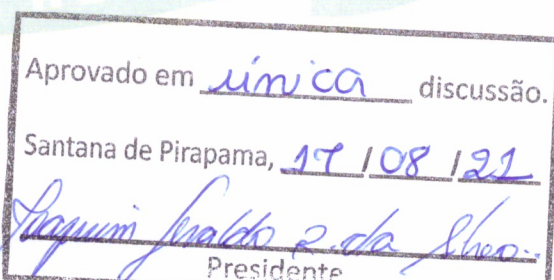 Aprovado em única discussão.
Santana de Pirapama, 17 / 08 / 21
Joaquim Geraldo da
Presidente